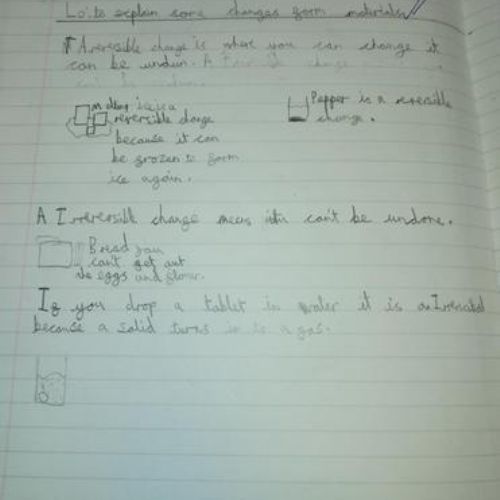 Lo: to explain some changes form materials
A reversible change is where you can change it
can be undun. A
melting ice is a
reversible change
because it can
be frozen to form
ice again.
Pepper is a reversible
change.
A Irreversible change means it can't be undone.
Bread you
can't get out
the eggs and flour.
If you drop a tablet in water it is an
because a solid turns in to a gas.